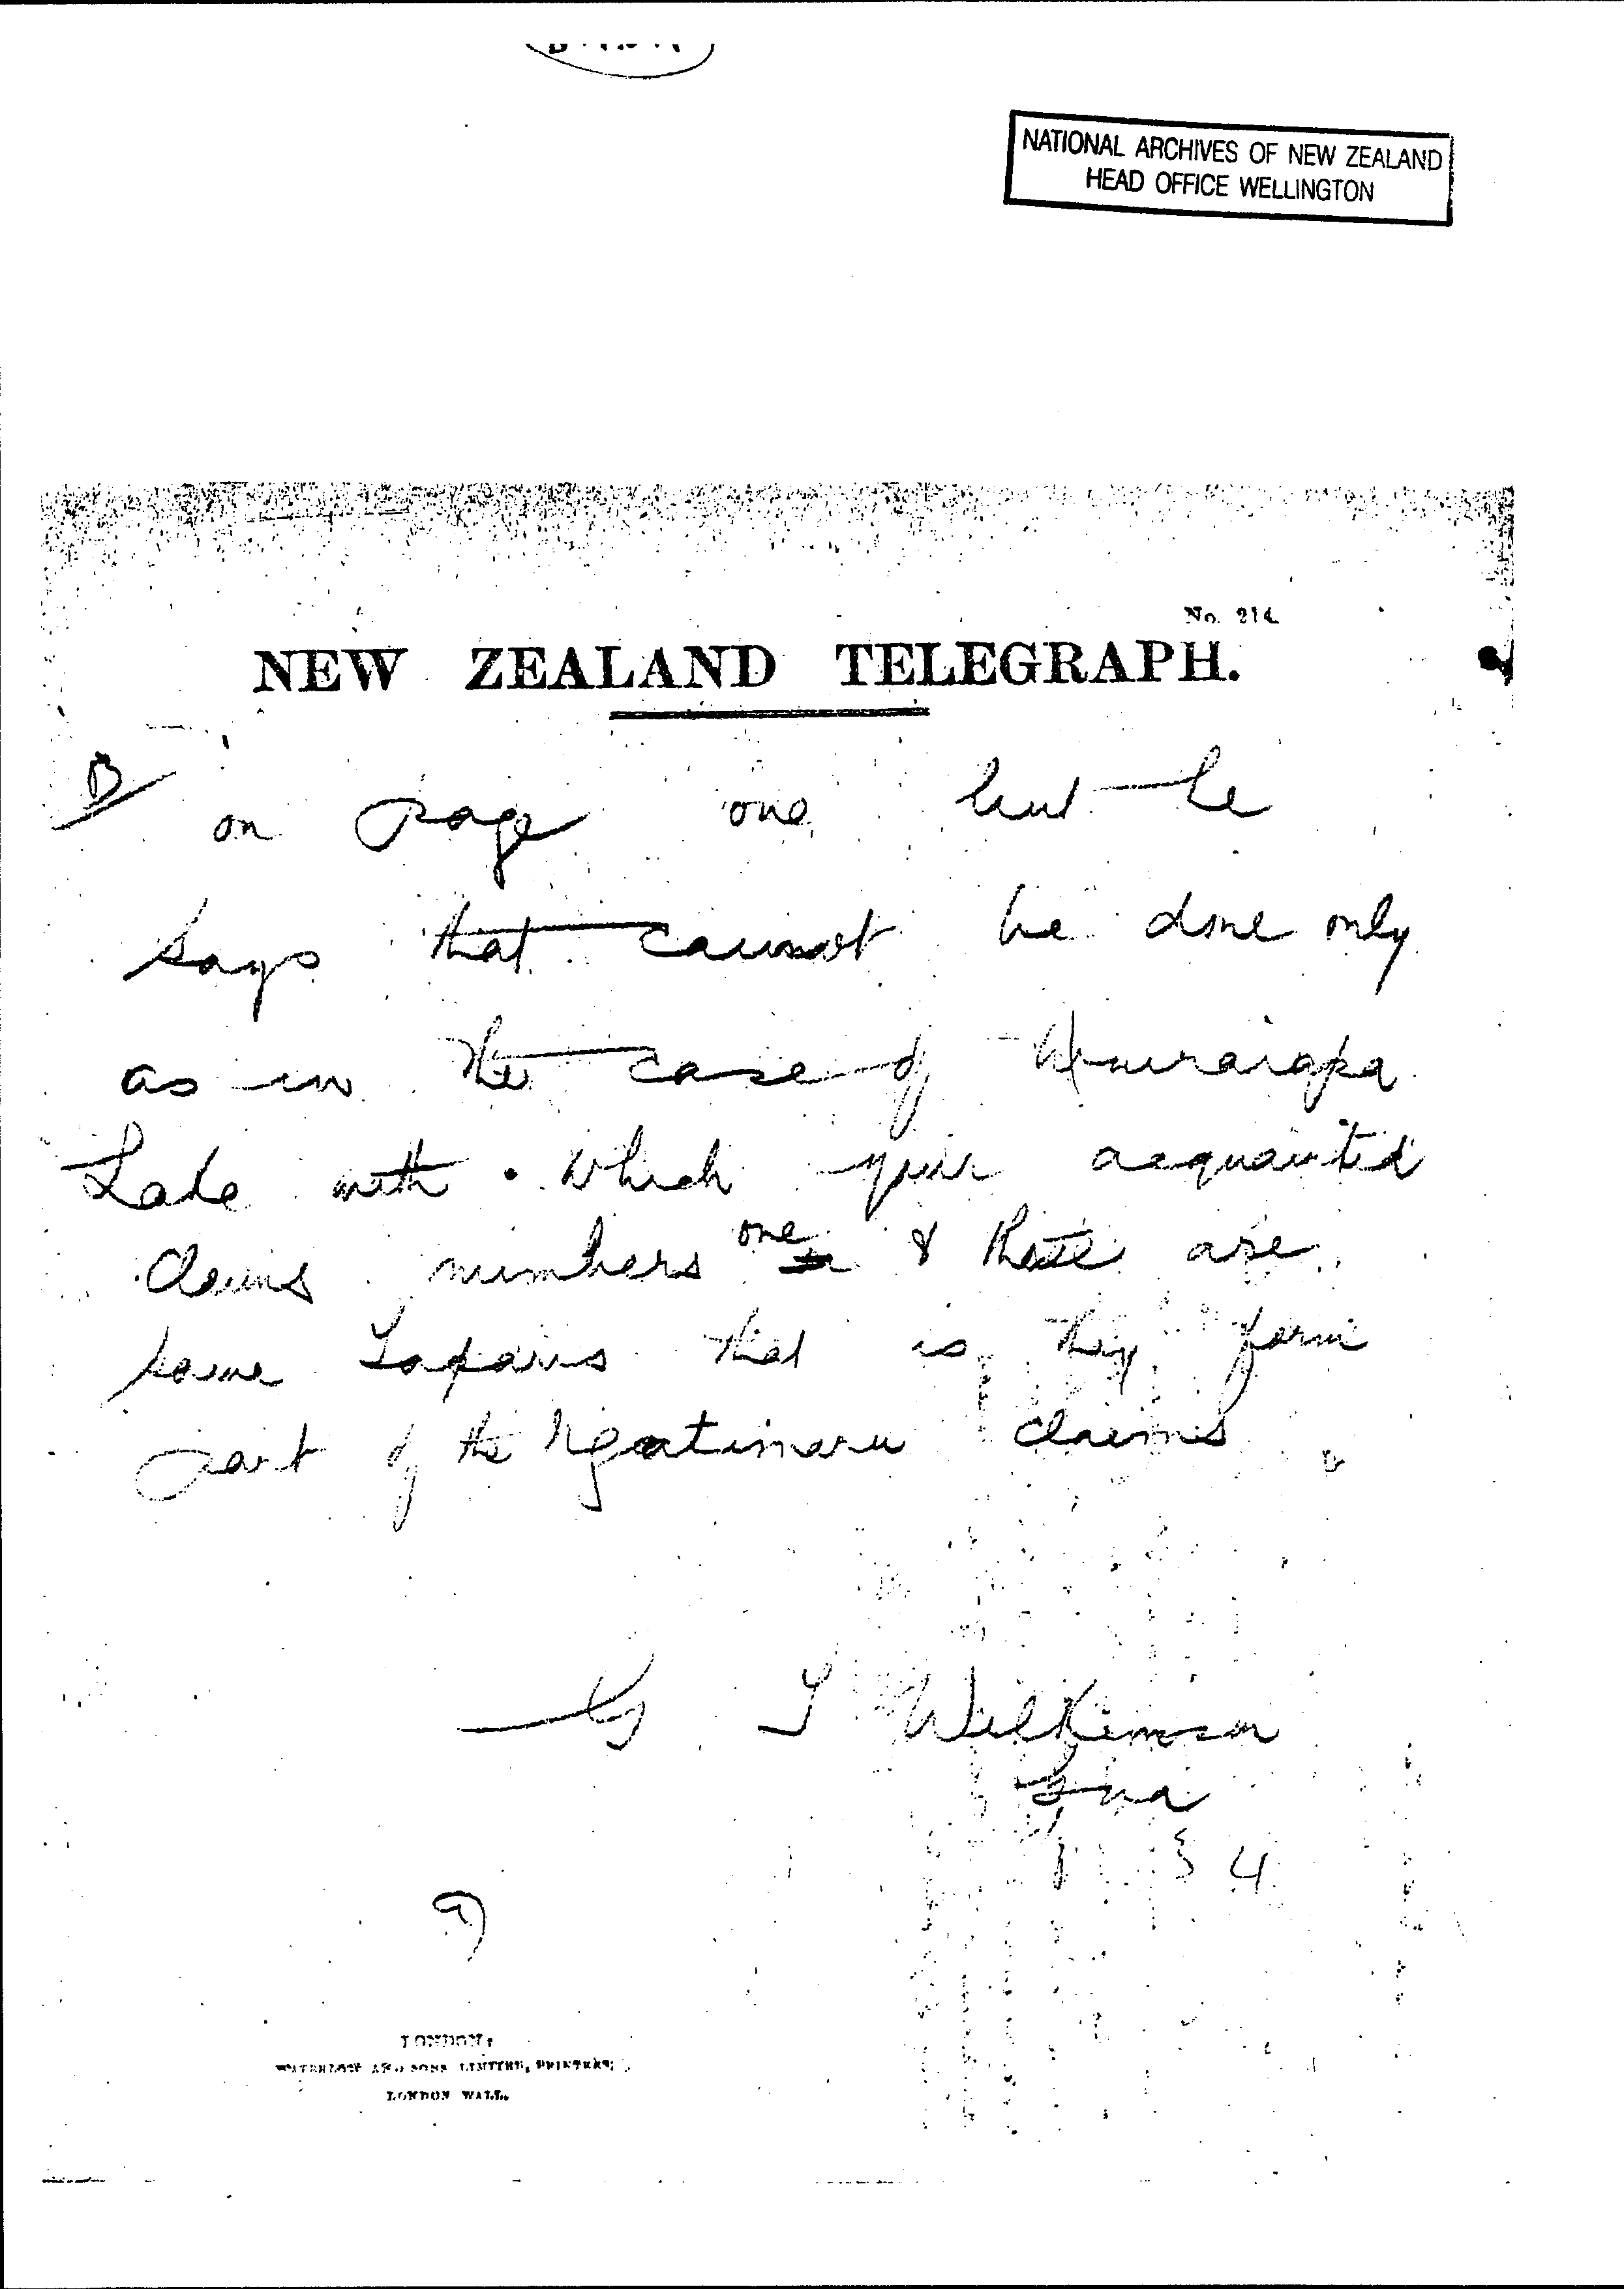 NATIONAL ARCHIVES OF NEW ZEALAND
HEAD OFFICE WELLINGTON
No. 214
NEW ZEALAND TELEGRAPH.
on page one but he
says that cannot be done only
as in the case of Wairarapa
Lake with which your acquainted
Claims numbers one & three are
same that is they form
part of the Ngatimaru claims
G T Wilkinson
LONDON:
WATERLOW AND SONS LIMITED, PRINTERS,
LONDON WALL.